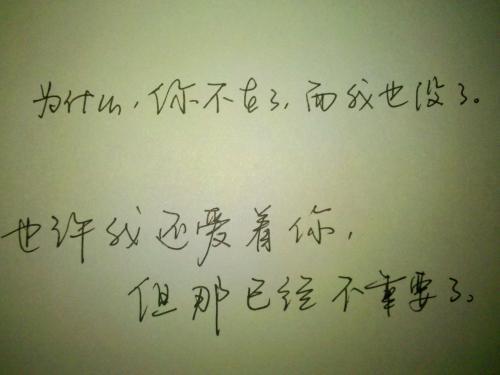 为什么，你不在了，而我也没了。
也许我还爱着你，
但那已经不重要了。